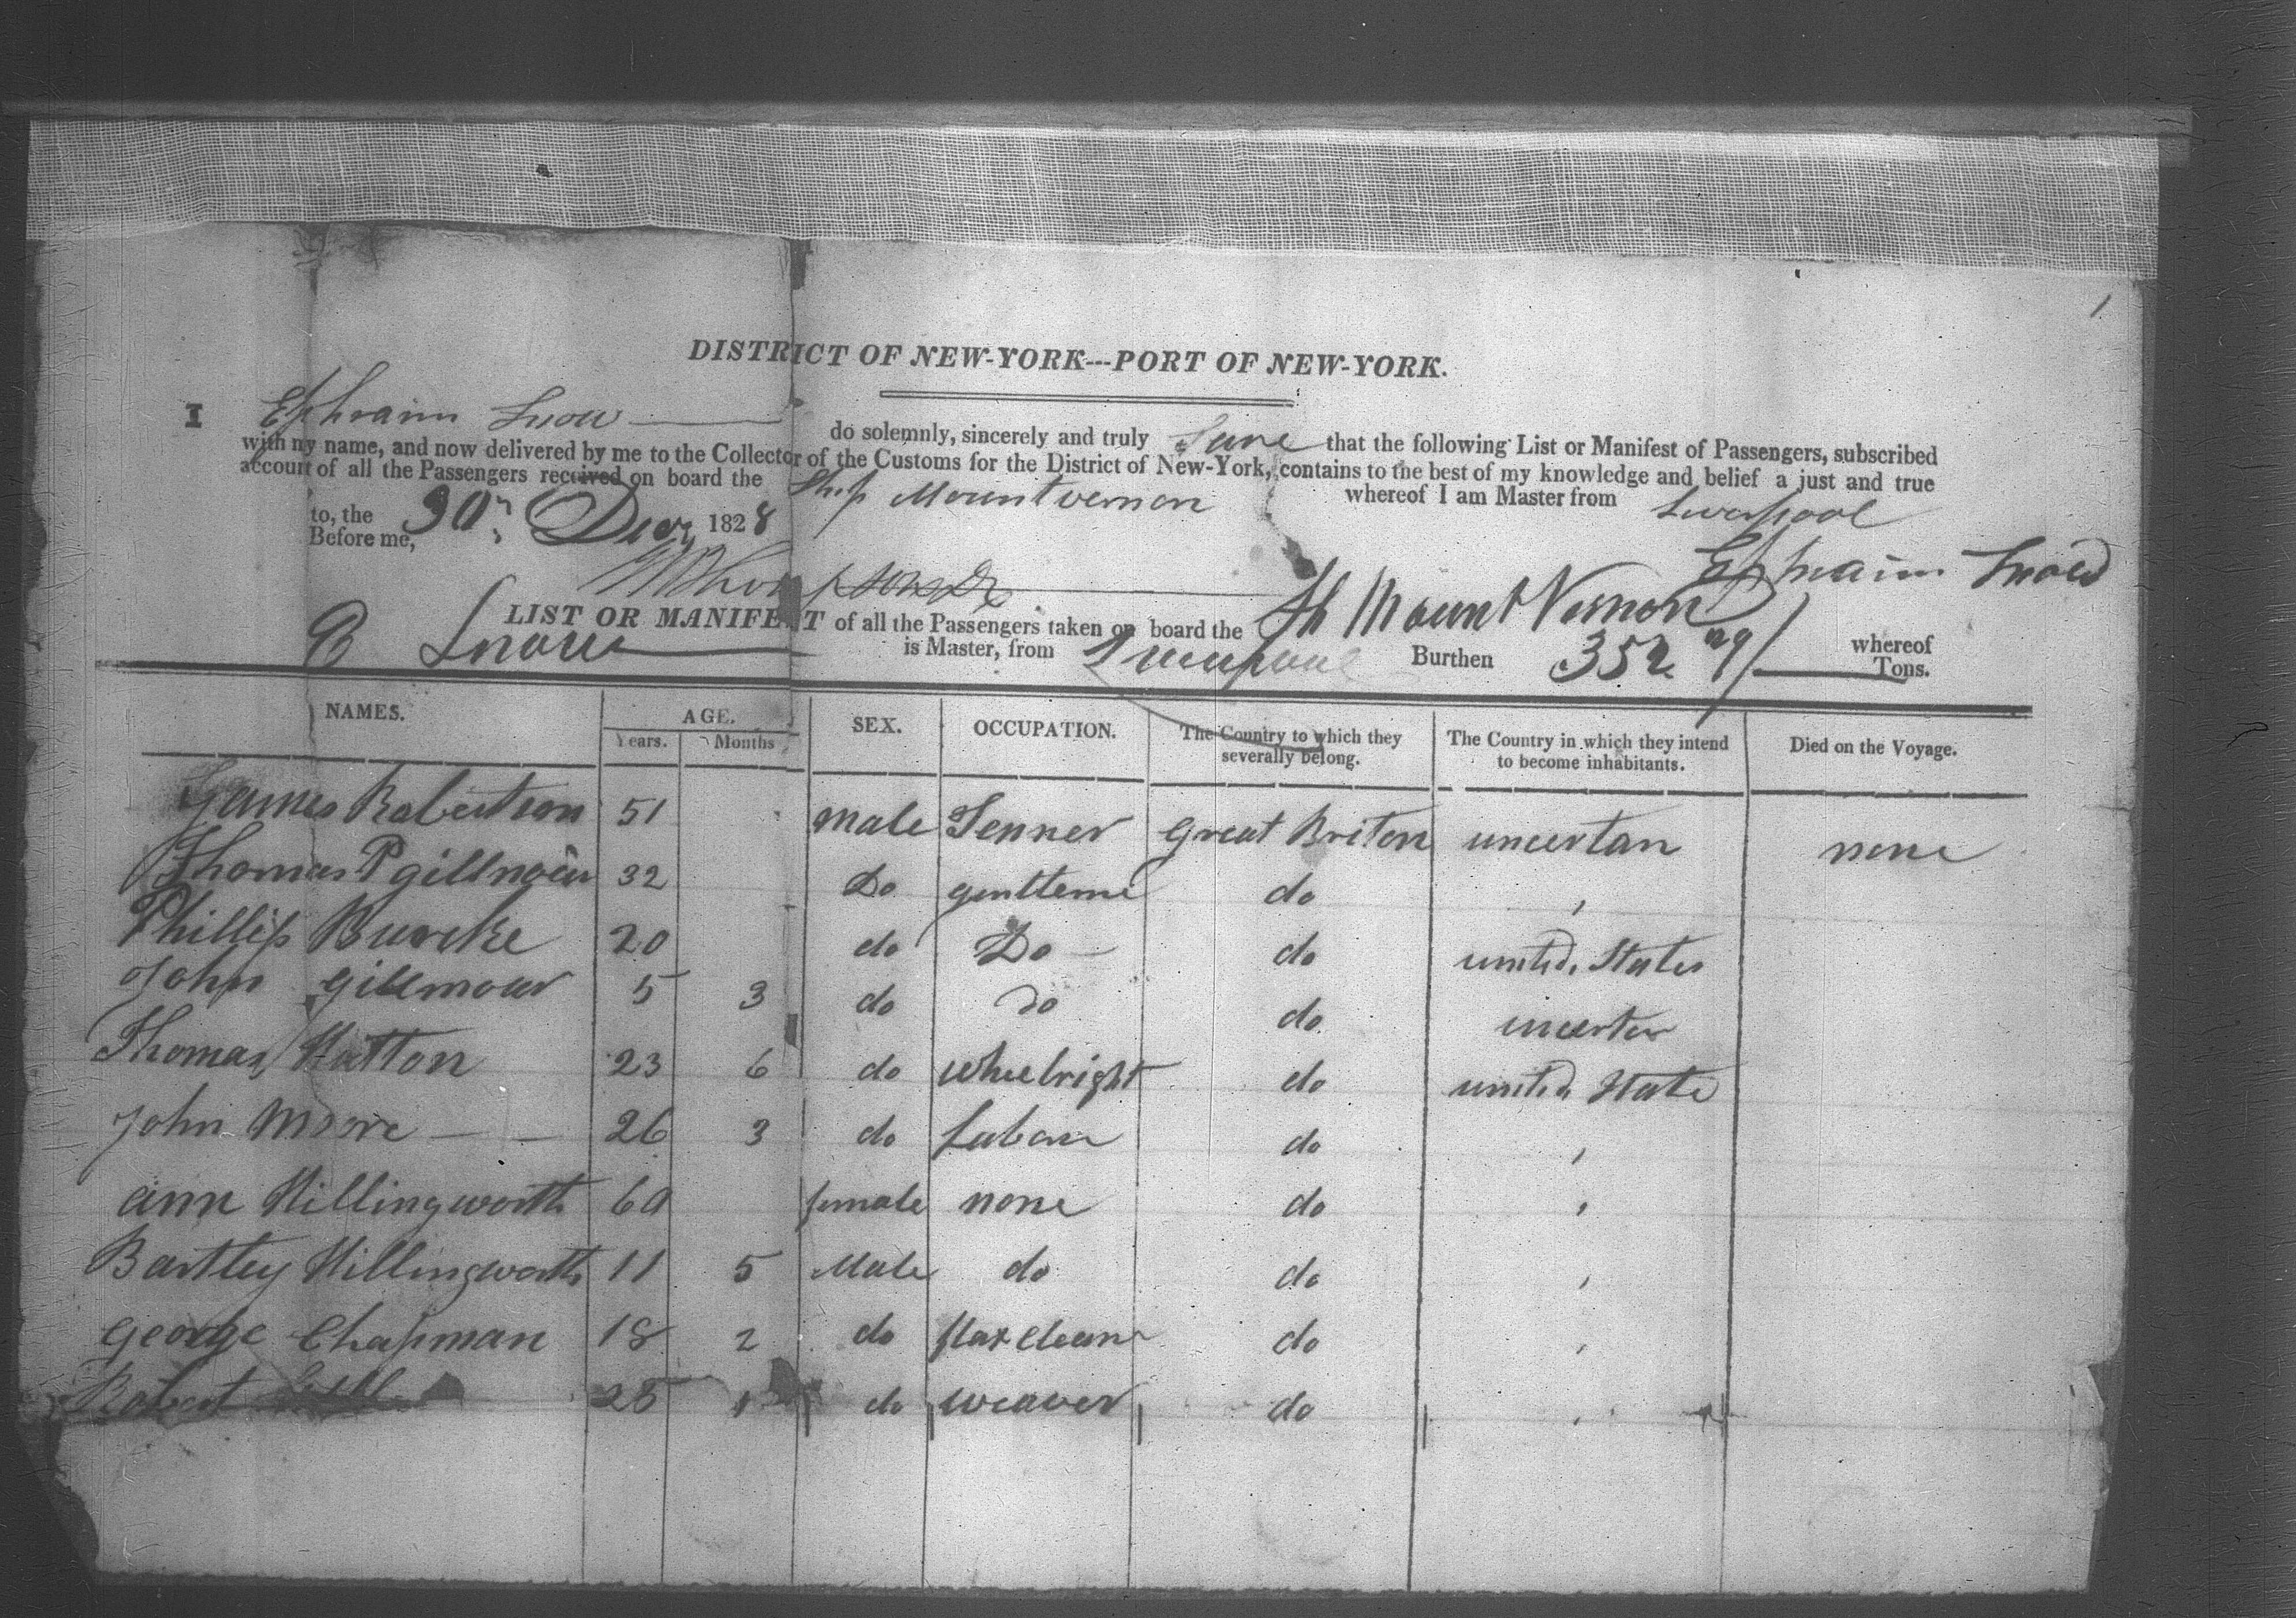 1
DISTRICT OF NEW-YORK---PORT OF NEW-YORK.
I Ephraim Snow do solemnly, sincerely and truly that the following List or Manifest of Passengers, subscribed
with my name, and now delivered by me to the Collector of the Customs for the District of New-York, contains to the best of my knowledge and belief a just and true
account of all the Passengers received on board the Ship Mount vernon whereof I am Master from Liverpool
to, the 30 Decr 1828
Before me,
Ephraim Snow
LIST OR MANIFEST of all the Passengers taken on board the Sh Mount Vernon whereof
E Snow is Master, from Liverpool Burthen 352 29/ Tons.
NAMES. AGE. SEX. OCCUPATION. The Country to which they severally belong. The Country in which they intend to become inhabitants. Died on the Voyage.
Years. Months
James Robertson 51 male Tenner Great Briton uncertan none
Thomas P gillmour 32 Do gentleme do ,
Phillip Burcke 20 do Do do united States
John gillmour 5 3 do do do uncertan
Thomas Hutton 23 6 do wheelright do united State
John Moore 26 3 do do ,
ann Hillingworth 60 female none do ,
Bartley Hillingworth 11 5 Male do do ,
George Chapman 18 2 do flax cleaner do ,
Robert 25 1 do weaver do ,